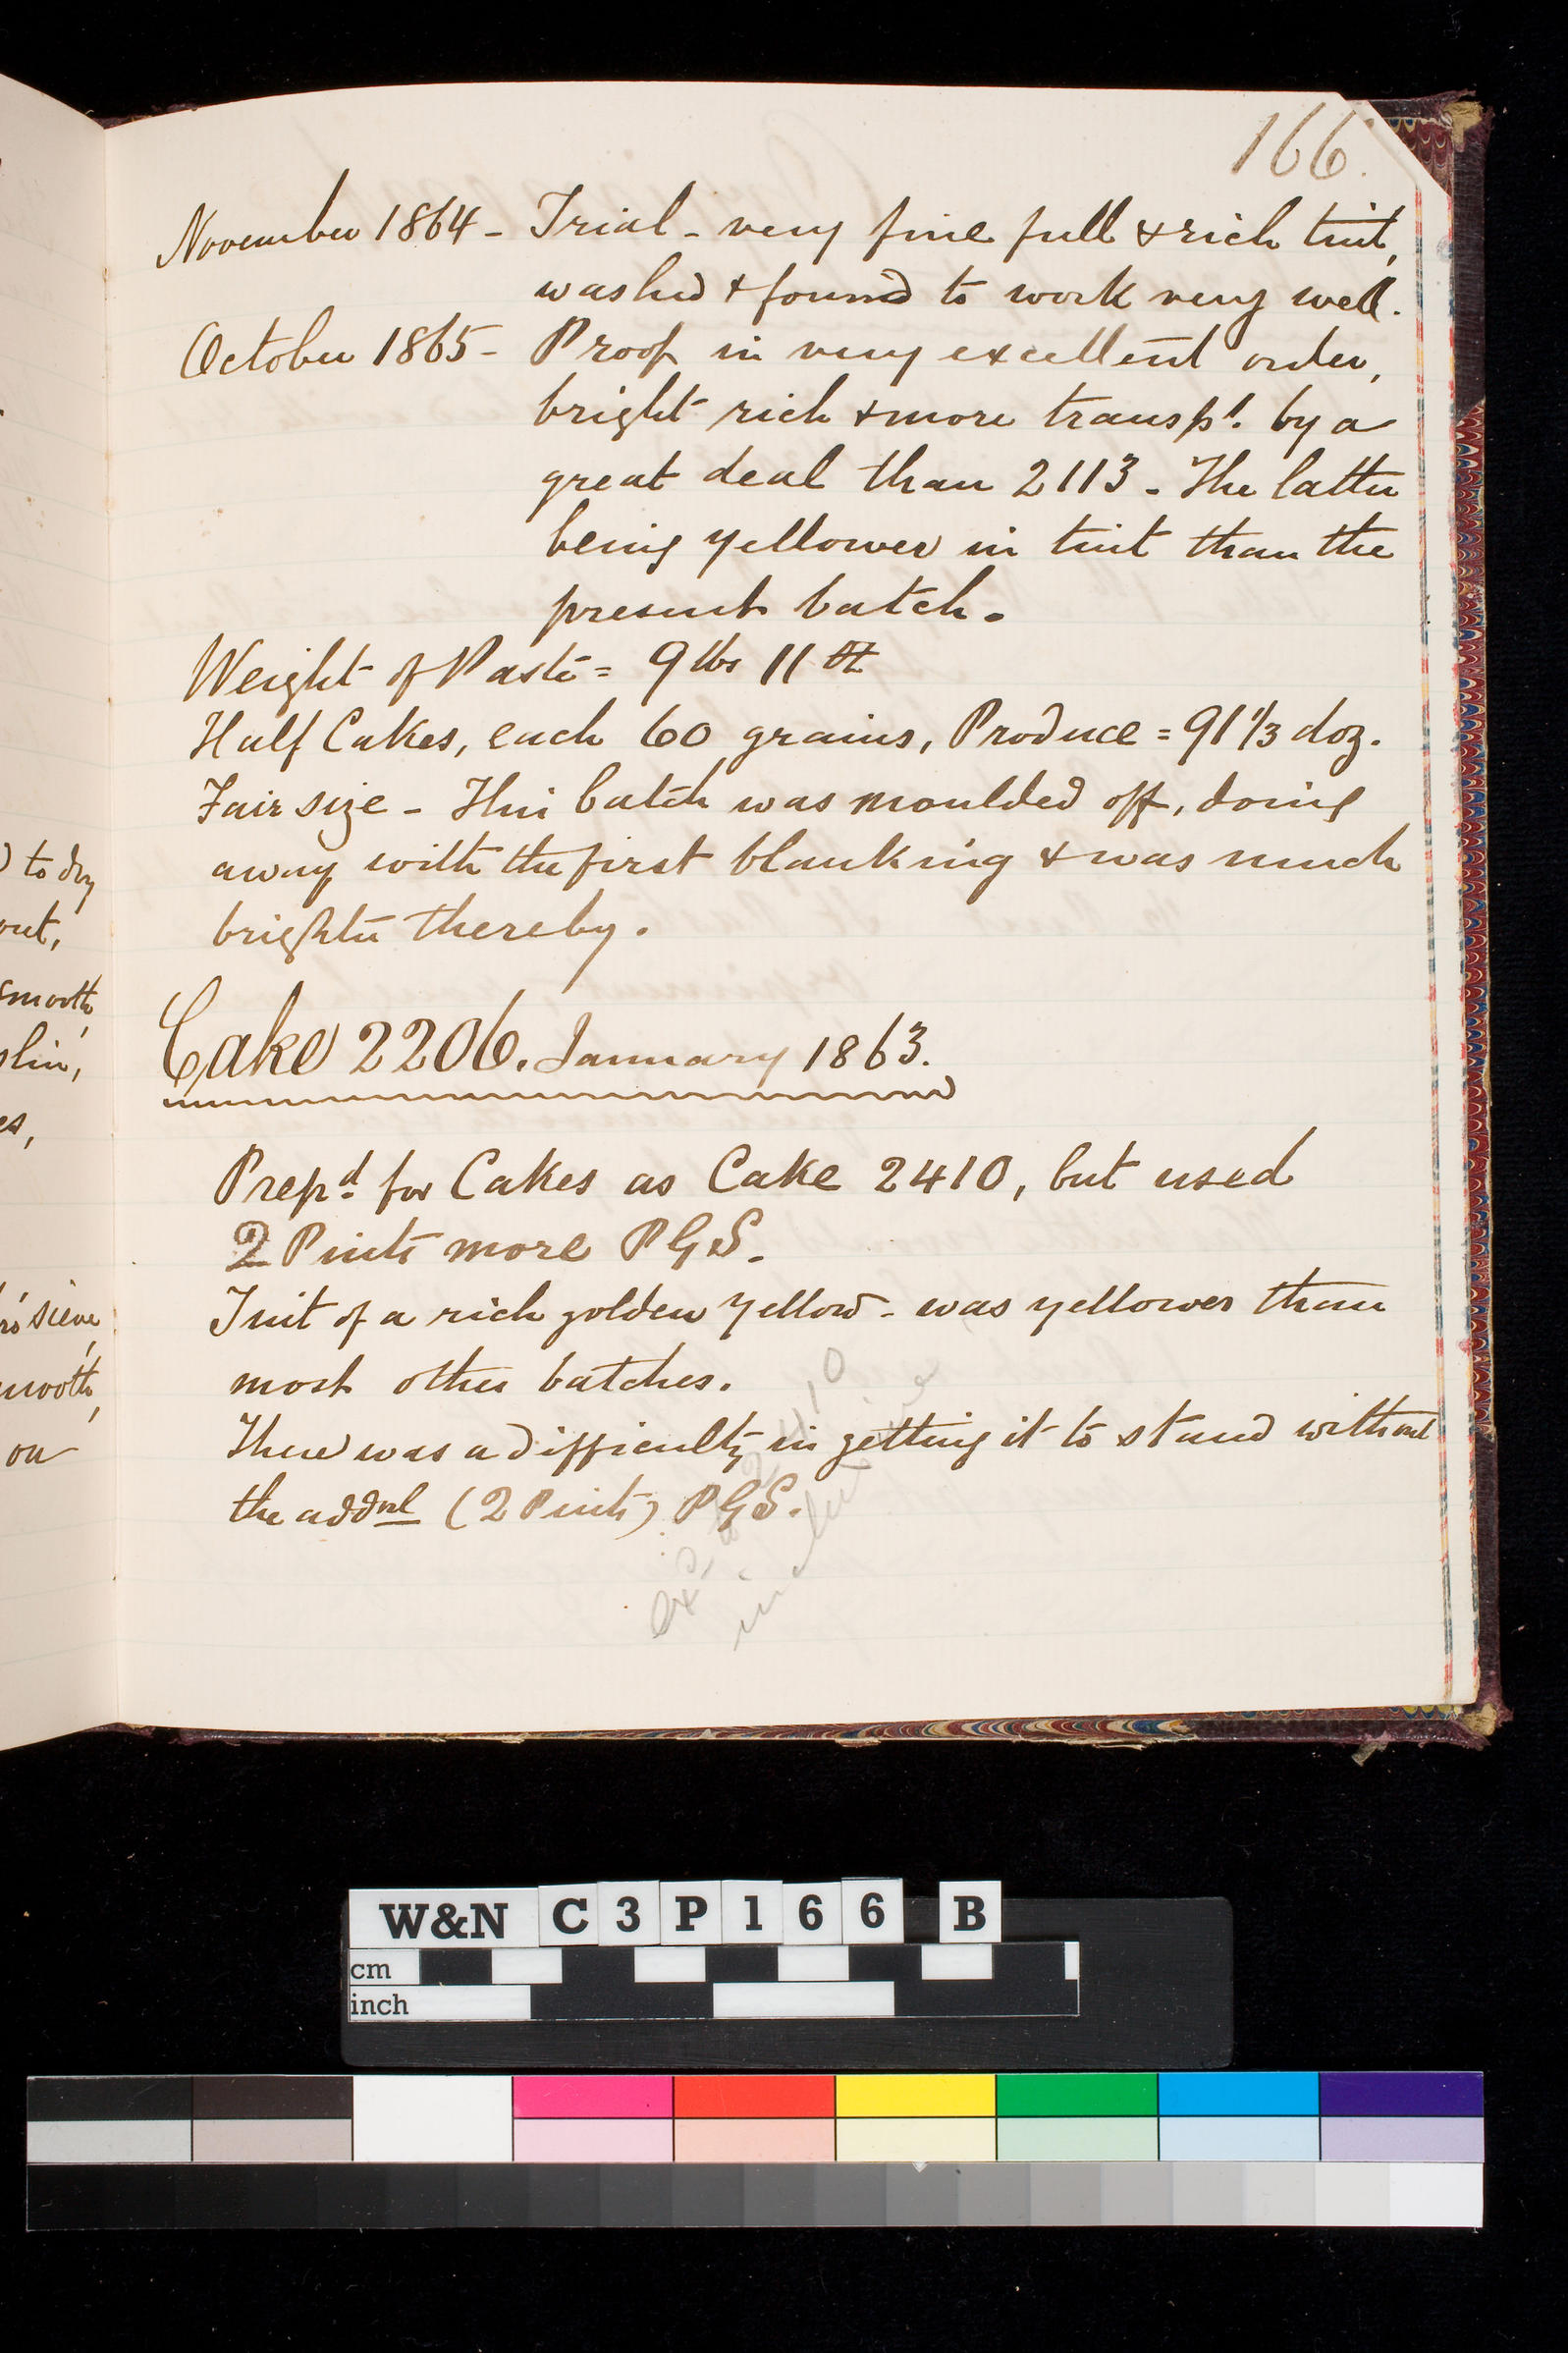 166.
November 1864 - Trial - very fine full & rich tint,
washed & found to work very well.
October 1865 - Proof in very excellent order,
bright rich & more transpt. by a
great deal than 2113 - The latter
being yellower in tint than the
present batch.
Weight of Paste = 9 lbs 11 oz
Half Cakes, each 60 grains, Produce = 91 1/3 doz.
Fair size - This batch was moulded off, doing
away with the first blanking & was much
brighter thereby.
Cake 2206. January 1863.
Prepd. for Cakes as Cake 2410, but used
2 Pints more PGS.
Tint of a rich golden yellow - was yellower than
most other batches.
There was a difficulty in getting it to stand without
the addnl (2 Pints) PGS.
2410
to dry
out,
smooth,
es,
sieve,
on
W&N C3P166 B
cm
inch